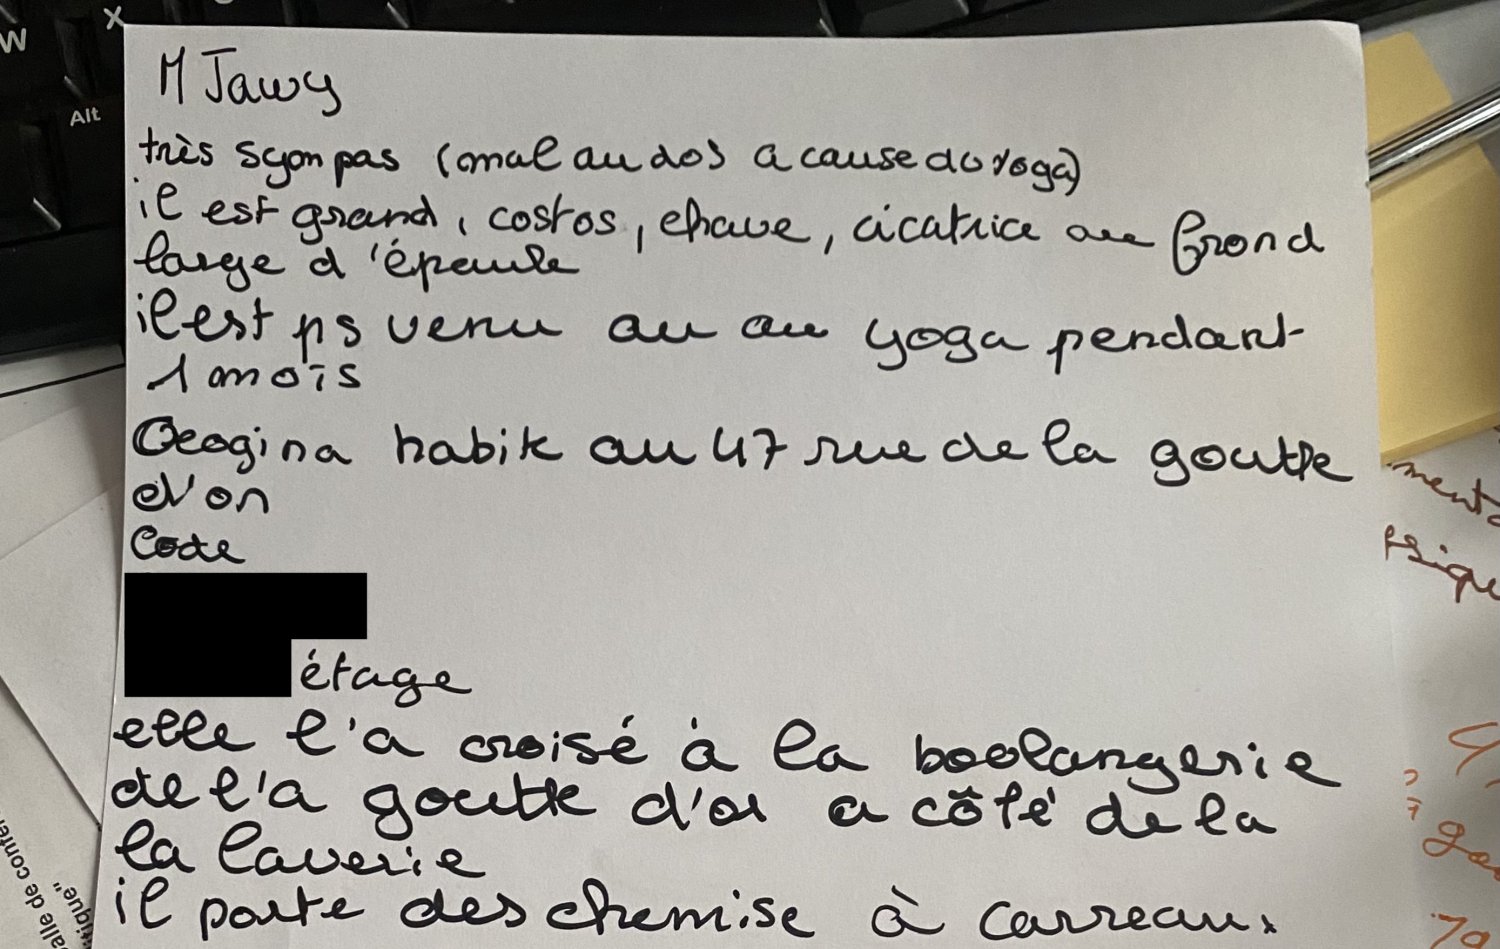 W
X
Alt
M Jawy
très syompas (mal au dos a cause du yoga)
il est grand, costos, chauve, cicatrice au frond
large d'épaule
il est ps venu au au yoga pendant
1 mois
Georgina habite au 47 rue de la goutte
d'or
Code
étage
elle l'a croisé à la boolangerie
de l'a goutte d'or a côté de la
la laverie
il porte des chemise à carreaux